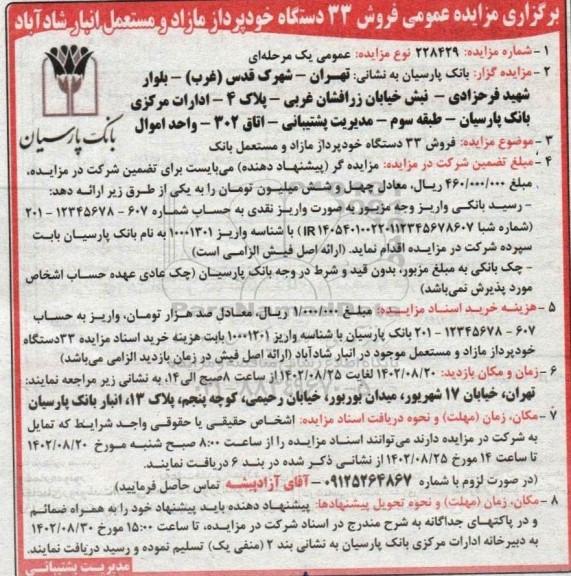 برگزاری مزایده عمومی فروش ۳۳ دستگاه خودپرداز مازاد و مستعمل انبار شادآباد
۱ - شماره مزایده: ۲۲۸۴۲۹ نوع مزایده: عمومی یک مرحله‌ای
۲ - مزایده گزار: بانک پارسیان به نشانی: تهران - شهرک قدس (غرب) - بلوار
شهید فرحزادی - نبش خیابان زرافشان غربی - پلاک ۴ - ادارات مرکزی
بانک پارسیان - طبقه سوم - مدیریت پشتیبانی - اتاق ۳۰۲ - واحد اموال
بانک پارسیان
۳ - موضوع مزایده: فروش ۳۳ دستگاه خودپرداز مازاد و مستعمل بانک
۴ - مبلغ تضمین شرکت در مزایده: مزایده گر (پیشنهاد دهنده) می‌بایست برای تضمین شرکت در مزایده،
مبلغ ۴۶۰/۰۰۰/۰۰۰ ریال، معادل چهل و شش میلیون تومان را به یکی از طرق زیر ارائه دهد:
- رسید بانکی واریز وجه مزبور به صورت واریز نقدی به حساب شماره ۶۰۷ - ۱۲۳۴۵۶۷۸ - ۲۰۱
(شماره شبا IR۱۴۰۵۴۰۱۰۰۲۲۰۱۱۲۳۴۵۶۷۸۶۰۷) با شناسه واریز ۱۰۰۰۱۳۰۱ به نام بانک پارسیان بابت
سپرده شرکت در مزایده اقدام نماید. (ارائه اصل فیش الزامی است)
- چک بانکی به مبلغ مزبور، بدون قید و شرط در وجه بانک پارسیان (چک عادی عهده حساب اشخاص
مورد پذیرش نمی‌باشد)
۵ - هزینه خرید اسناد مزایده: مبلغ ۱/۰۰۰/۰۰۰ ریال، معادل صد هزار تومان، واریز به حساب
۶۰۷ - ۱۲۳۴۵۶۷۸ - ۲۰۱ بانک پارسیان با شناسه واریز ۱۰۰۰۱۲۰۱ بابت هزینه خرید اسناد مزایده ۳۳دستگاه
خودپرداز مازاد و مستعمل موجود در انبار شادآباد (ارائه اصل فیش در زمان بازدید الزامی می‌باشد)
۶ - زمان و مکان بازدید: ۱۴۰۲/۰۸/۲۰ لغایت ۱۴۰۲/۰۸/۲۵ از ساعت ۸صبح الی۱۴، به نشانی زیر مراجعه نمایند:
تهران، خیابان ۱۷ شهریور، میدان بوربور، خیابان رحیمی، کوچه پنجم، پلاک ۱۳، انبار بانک پارسیان
۷ - مکان، زمان (مهلت) و نحوه دریافت اسناد مزایده: اشخاص حقیقی یا حقوقی واجد شرایط که تمایل
به شرکت در مزایده دارند می‌توانند اسناد مزایده را از ساعت ۸:۰۰ صبح شنبه مورخ ۱۴۰۲/۰۸/۲۰
تا ساعت ۱۴ مورخ ۱۴۰۲/۰۸/۲۵ از نشانی ذکر شده در بند ۶ دریافت نمایند.
(در صورت لزوم با شماره ۰۹۱۲۵۲۶۴۸۶۷ - آقای آزادپیشه تماس حاصل فرمایید)
۸ - مکان، زمان (مهلت) و نحوه تحویل پیشنهادها: پیشنهاد دهنده باید پیشنهاد خود را به همراه ضمائم
و در پاکتهای جداگانه به شرح مندرج در اسناد شرکت در مزایده، تا ساعت ۱۵:۰۰ مورخ ۱۴۰۲/۰۸/۳۰
به دبیرخانه ادارات مرکزی بانک پارسیان به نشانی بند ۲ (منفی یک) تسلیم نموده و رسید دریافت نمایند.
مدیریت پشتیبانی